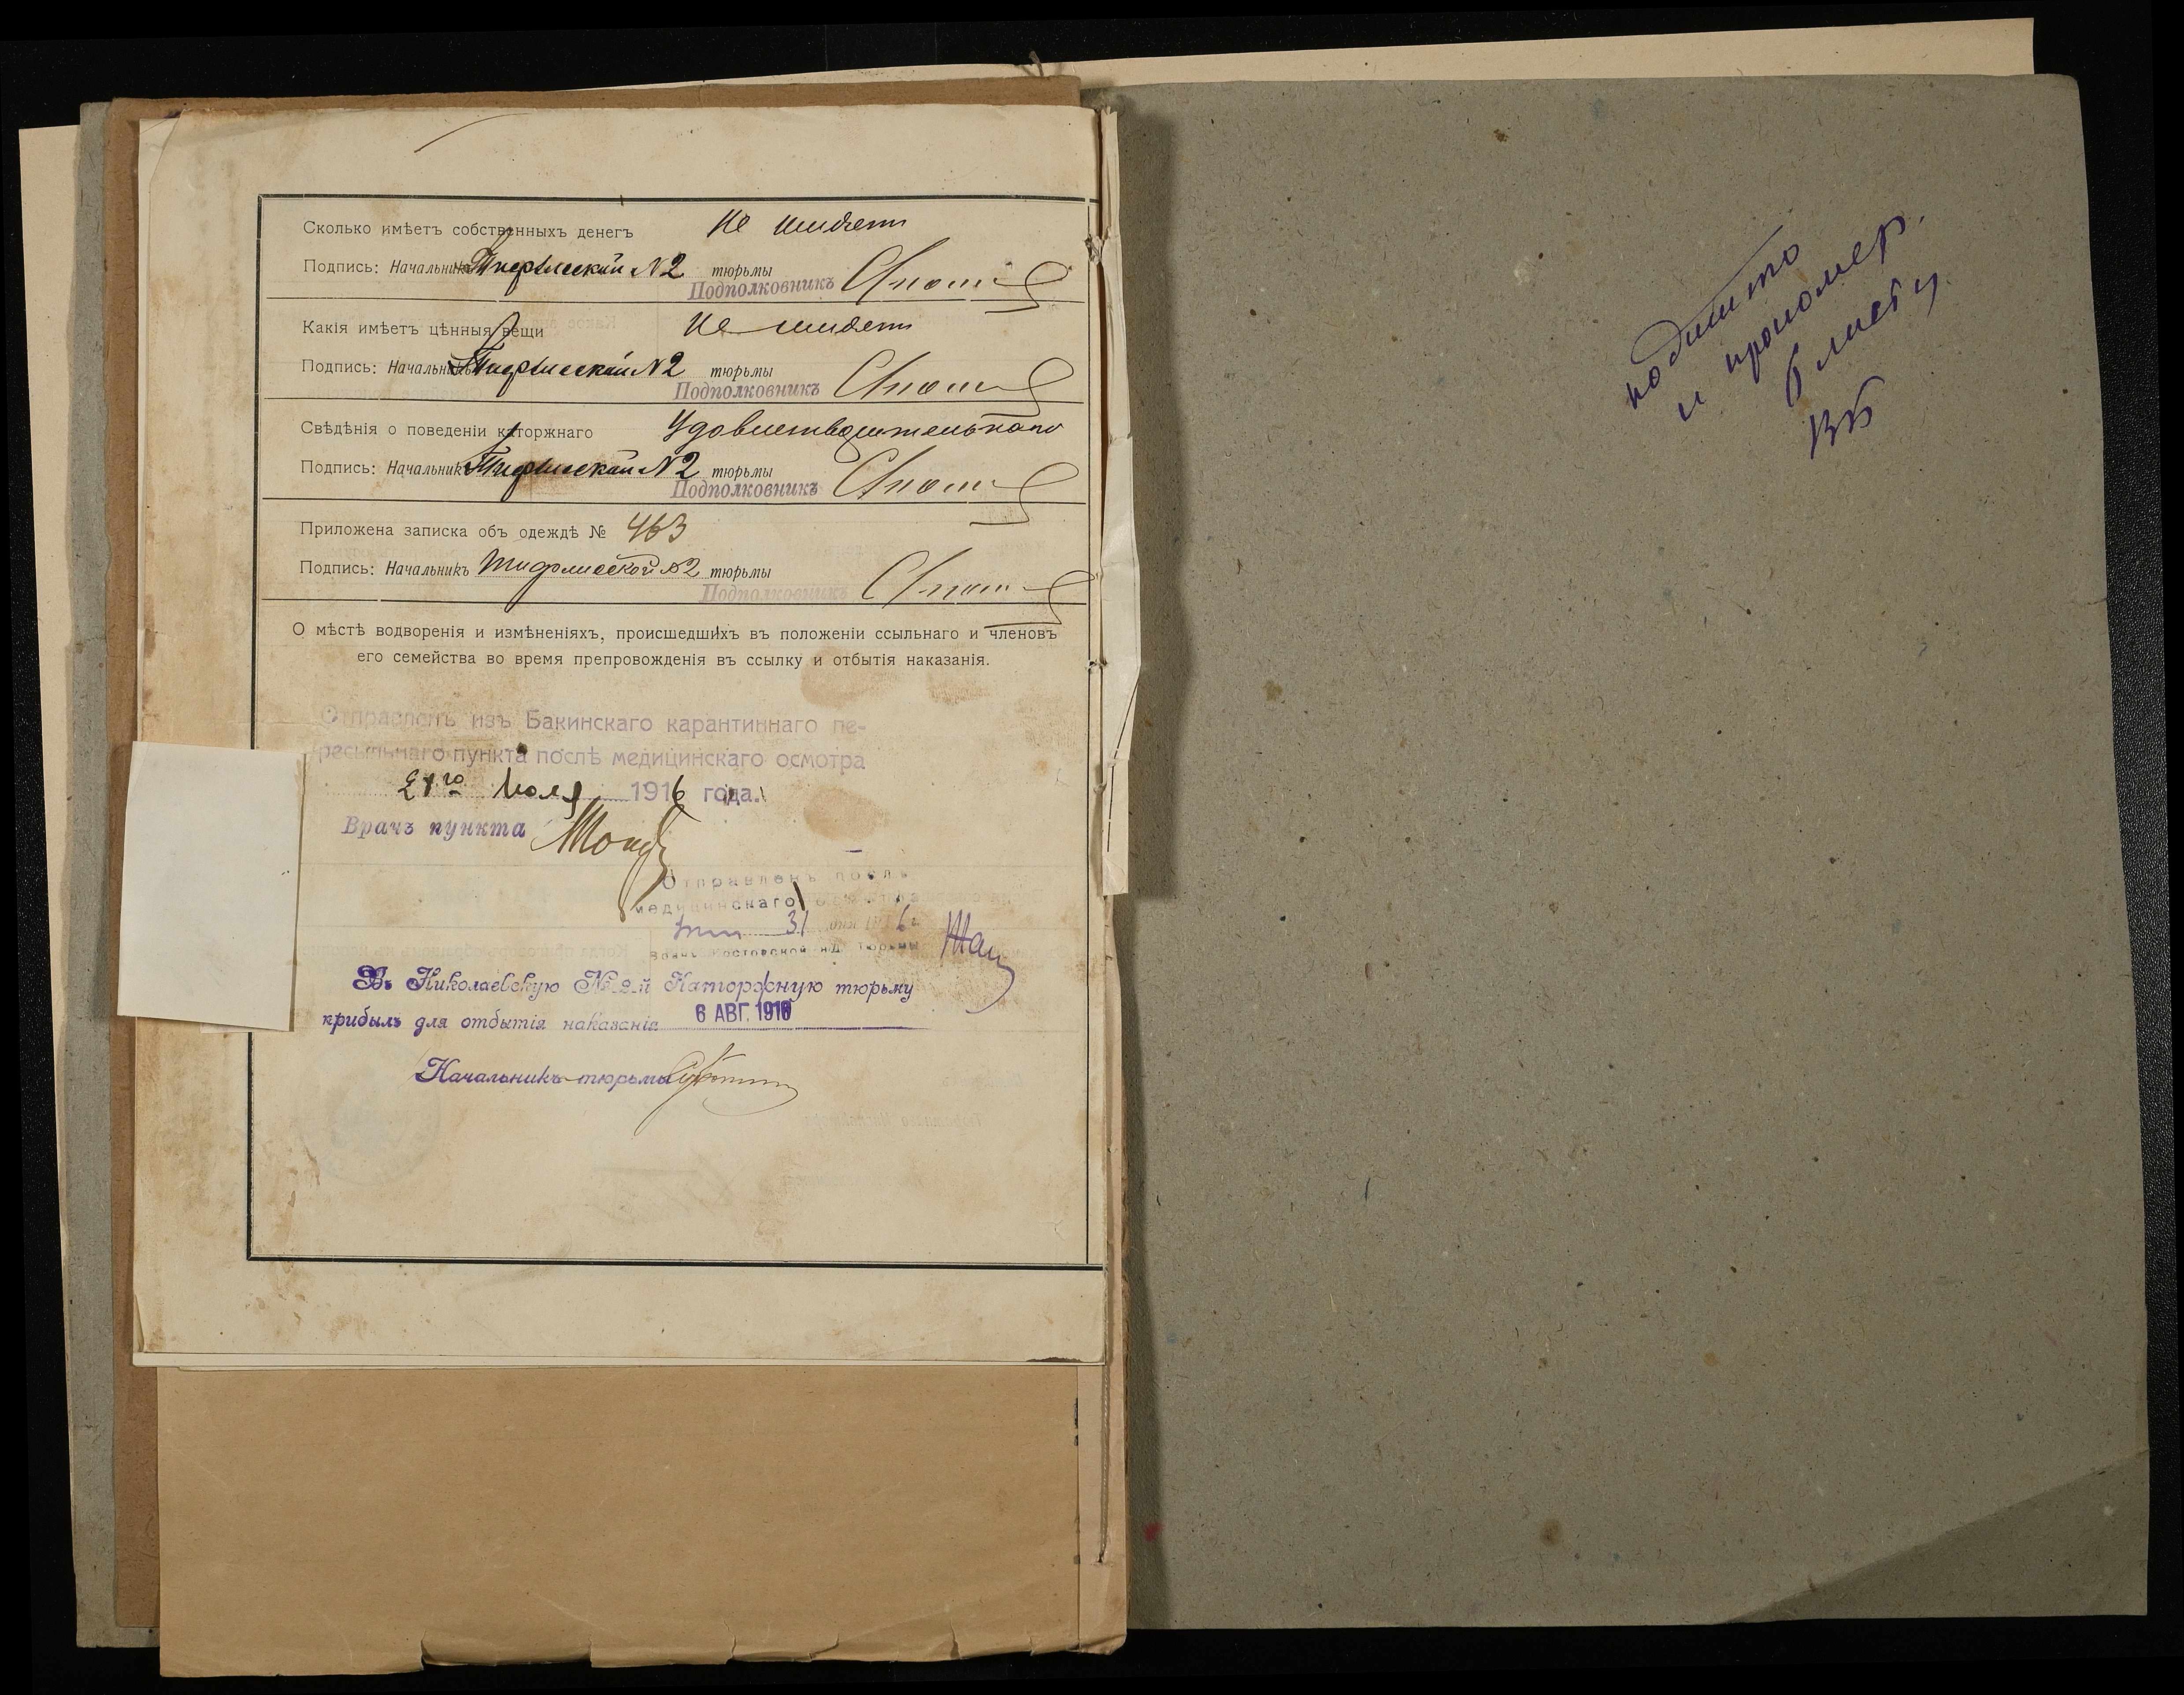 Сколько имѣетъ собственныхъ денегъ не имѣетъ
Подпись: Начальникъ Тифлисской №2 тюрьмы
Подполковникъ
Какія имѣетъ цѣнныя вещи не имѣетъ
Подпись: Начальникъ Тифлисской №2 тюрьмы
Подполковникъ
Свѣдѣнія о поведеніи каторжнаго Удовлетворительнаго
Подпись: Начальникъ Тифлисской №2 тюрьмы
Подполковникъ
Приложена записка объ одеждѣ № 463
Подпись: Начальникъ Тифлисской №2 тюрьмы
Подполковникъ
О мѣстѣ водворенія и измѣненіяхъ, происшедшихъ въ положеніи ссыльнаго и членовъ
его семейства во время препровожденія въ ссылку и отбытія наказанія.
Отправленъ изъ Бакинскаго карантиннаго пе-
ресыльнаго пункта послѣ медицинскаго осмотра
21го Іюля 1916 года.
Врачъ пункта
Отправленъ послѣ
медицинскаго
31
Врачъ Ростовской н/Д тюрьмы
Въ Николаевскую № 2-й Каторжную тюрьму
прибылъ для отбытія наказанія 6 АВГ. 1916
Начальникъ тюрьмы
подшито
и прономер.
6 листу